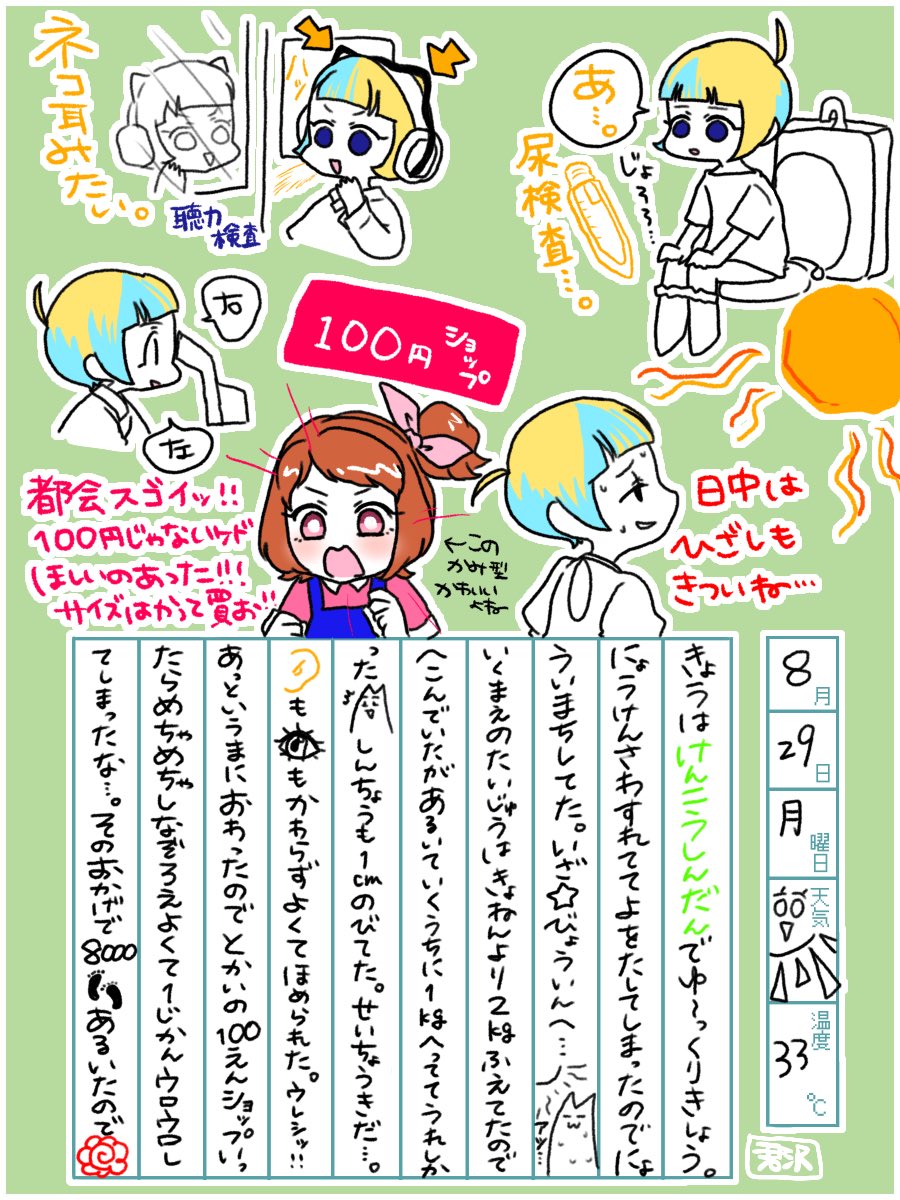 ネコ耳みたい。
聴力
検査
ハッ
あ…。
じょろろ…
尿検査…。
右
な
100円
ショップ
都会スゴイッ!!
100円じゃないケド
ほしいのあった!!!
サイズはかって買お!!
←この
かみ型
かわいい
よねー
日中は
ひざしも
きついね…
8月
29日
月曜日
天気
温度
33℃
きょうはけんこうしんだんでゆ〜っくりきしょう。
にょうけんさわすれててよをたしてしまったのでにょ
ういまちしてた。いざ☆びょういんへ…
アッ…
いくまえのたいじゅうはきょねんより2kgふえてたので
へこんでいたがあるいていくうちに1kgへっててうれしか
った
しんちょうも1cmのびてた。せいちょうきだ…。
ももかわらずよくてほめられた。ウレシッ!!
あっというまにおわったのでとかいの100えんショップいっ
たらめちゃめちゃしなぞろえよくて1じかんウロウロし
てしまったな…。そのおかげで8000あるいたので
君沢